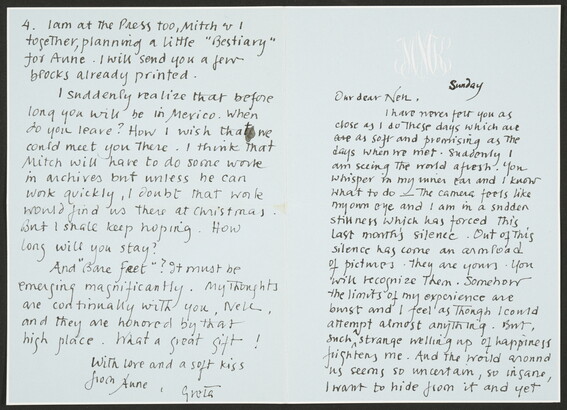 4. I am at the Press too, Mitch & I
together, planning a little "Bestiary"
for Anne. I will send you a few
blocks already printed.
I suddenly realize that before
long you will be in Mexico. When
do you leave? How I wish that we
could meet you there. I think that
Mitch will have to do some work
in archives but unless he can
work quickly, I doubt that work
would find us there at Christmas.
But I shall keep hoping. How
long will you stay?
And "Bare Feet"? It must be
emerging magnificently. My thoughts
are continually with you, Nell,
and they are honored by that
high place. What a great gift!
With love and a soft kiss
from Anne,
Greta
Sunday
Our dear Nell,
I have never felt you as
close as I do these days which are
are as soft and promising as the
days when we met. Suddenly I
am seeing the world afresh. You
whisper in my inner ear and I know
what to do — The camera feels like
my own eye and I am in a sudden
stillness which has forced this
last month's silence. Out of this
silence has come an armload
of pictures. They are yours. You
will recognize them. Somehow
the limits of my experience are
burst and I feel as though I could
attempt almost anything. But,
such strange welling up of happiness
frightens me. And the world around
us seems so uncertain, so insane,
I want to hide from it and yet